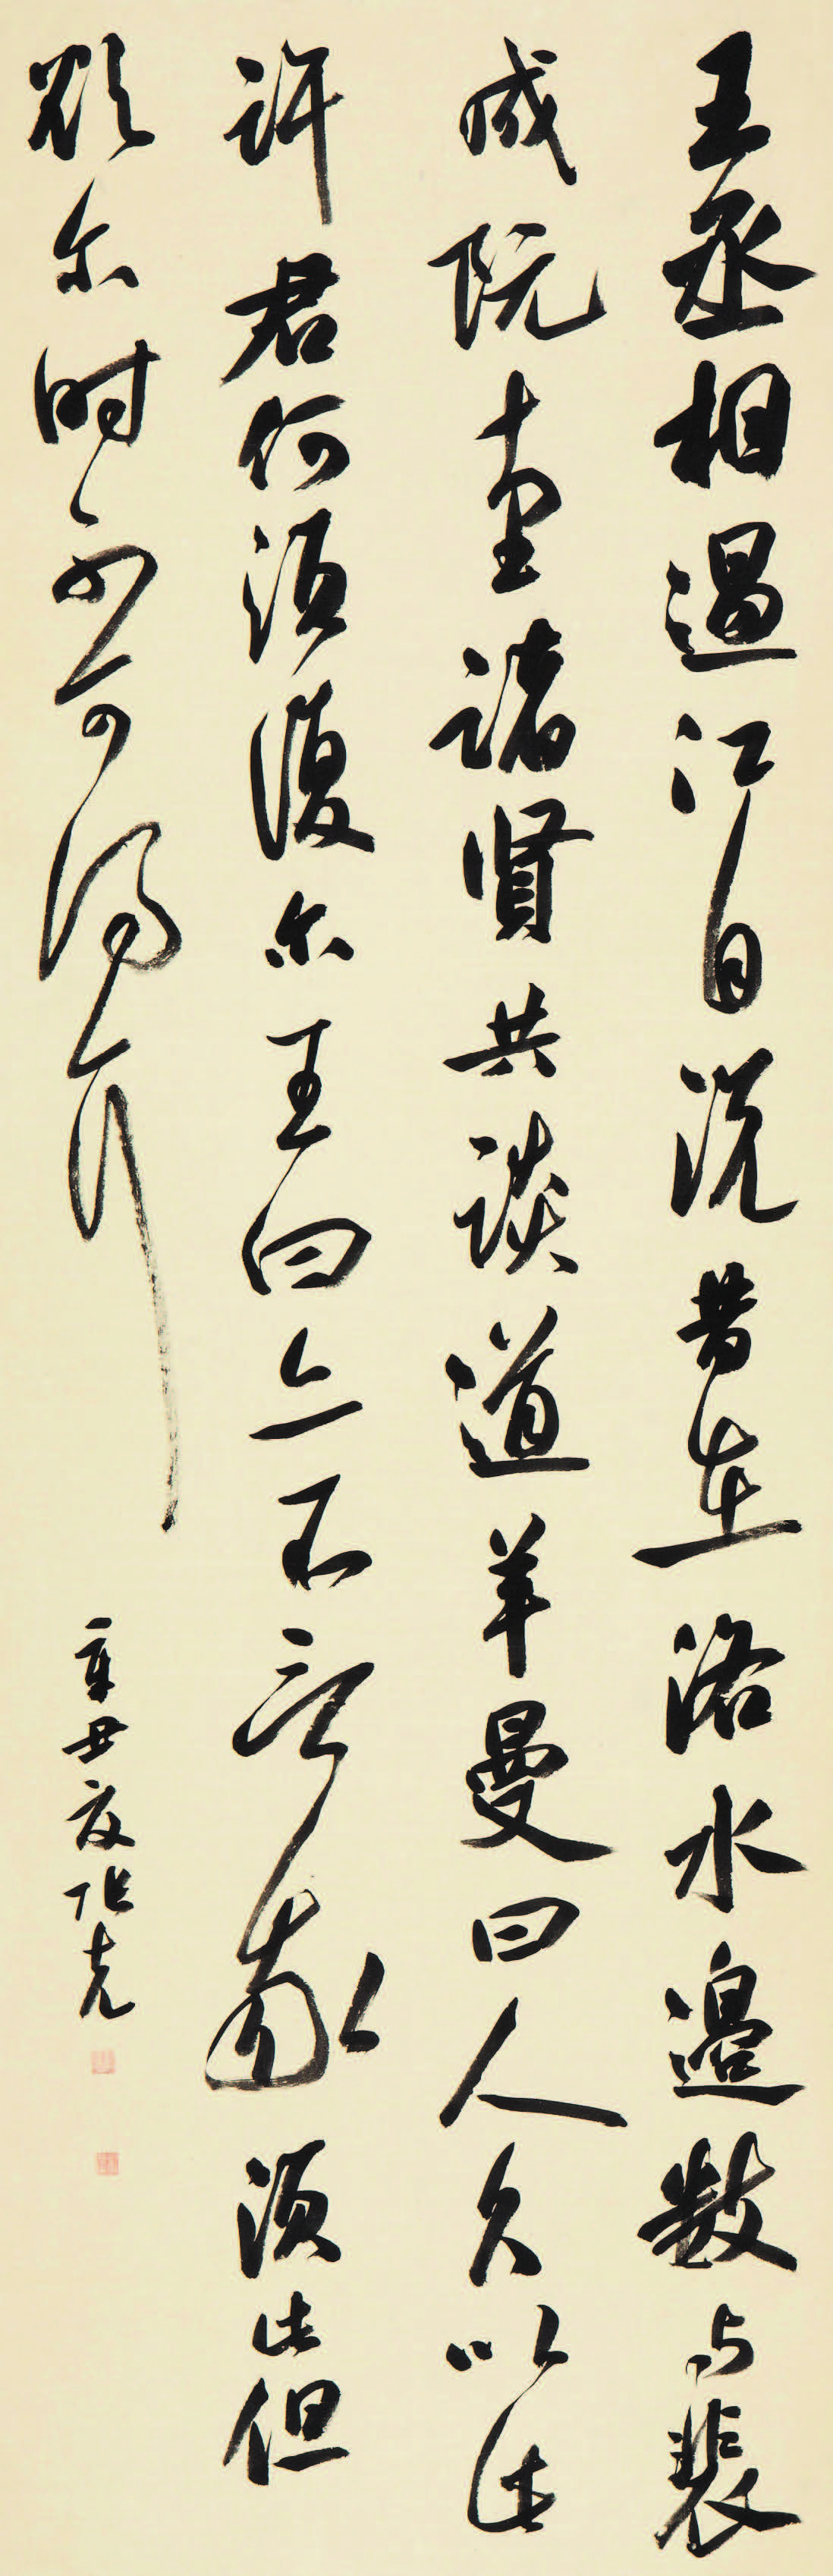 王丞相過江自説昔在洛水邊數与裴
成阮千里諸賢共談道羊曼曰人久以此
許君何須復尔王曰亦不言我須此但
欲尔时不可得耳
辛丑夏張克